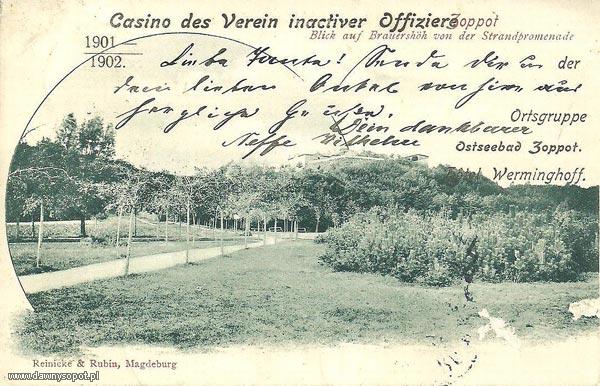 Casino des Verein inactiver Offiziere
Zoppot
Blick auf Brauershöh von der Strandpromenade
1901 —
1902.
der
Liebe Tante! Sende Dir u
dem lieben Onkel von hier aus
herzliche Grüsse.
Dein dankbarer
Neffe Wilhelm
Ortsgruppe
Ostseebad Zoppot.
Hôtel Werminghoff.
Reinicke & Rubin, Magdeburg
www.dawnysopot.pl